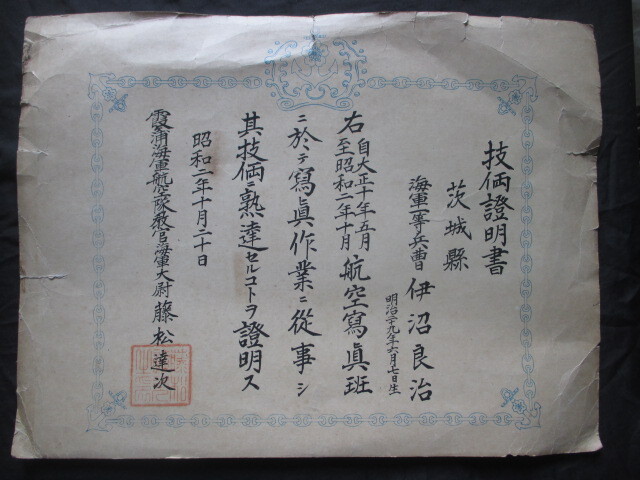 技倆證明書
茨城縣
海軍一等兵曹 伊沼良治
明治二十九年六月七日生
右 自大正十年五月 至昭和二年十月 航空寫眞班
ニ於テ寫眞作業ニ從事シ
其技倆ニ熟達セルコトヲ證明ス
昭和二年十月二十日
霞浦海軍航空隊敎官海軍大尉藤松達次